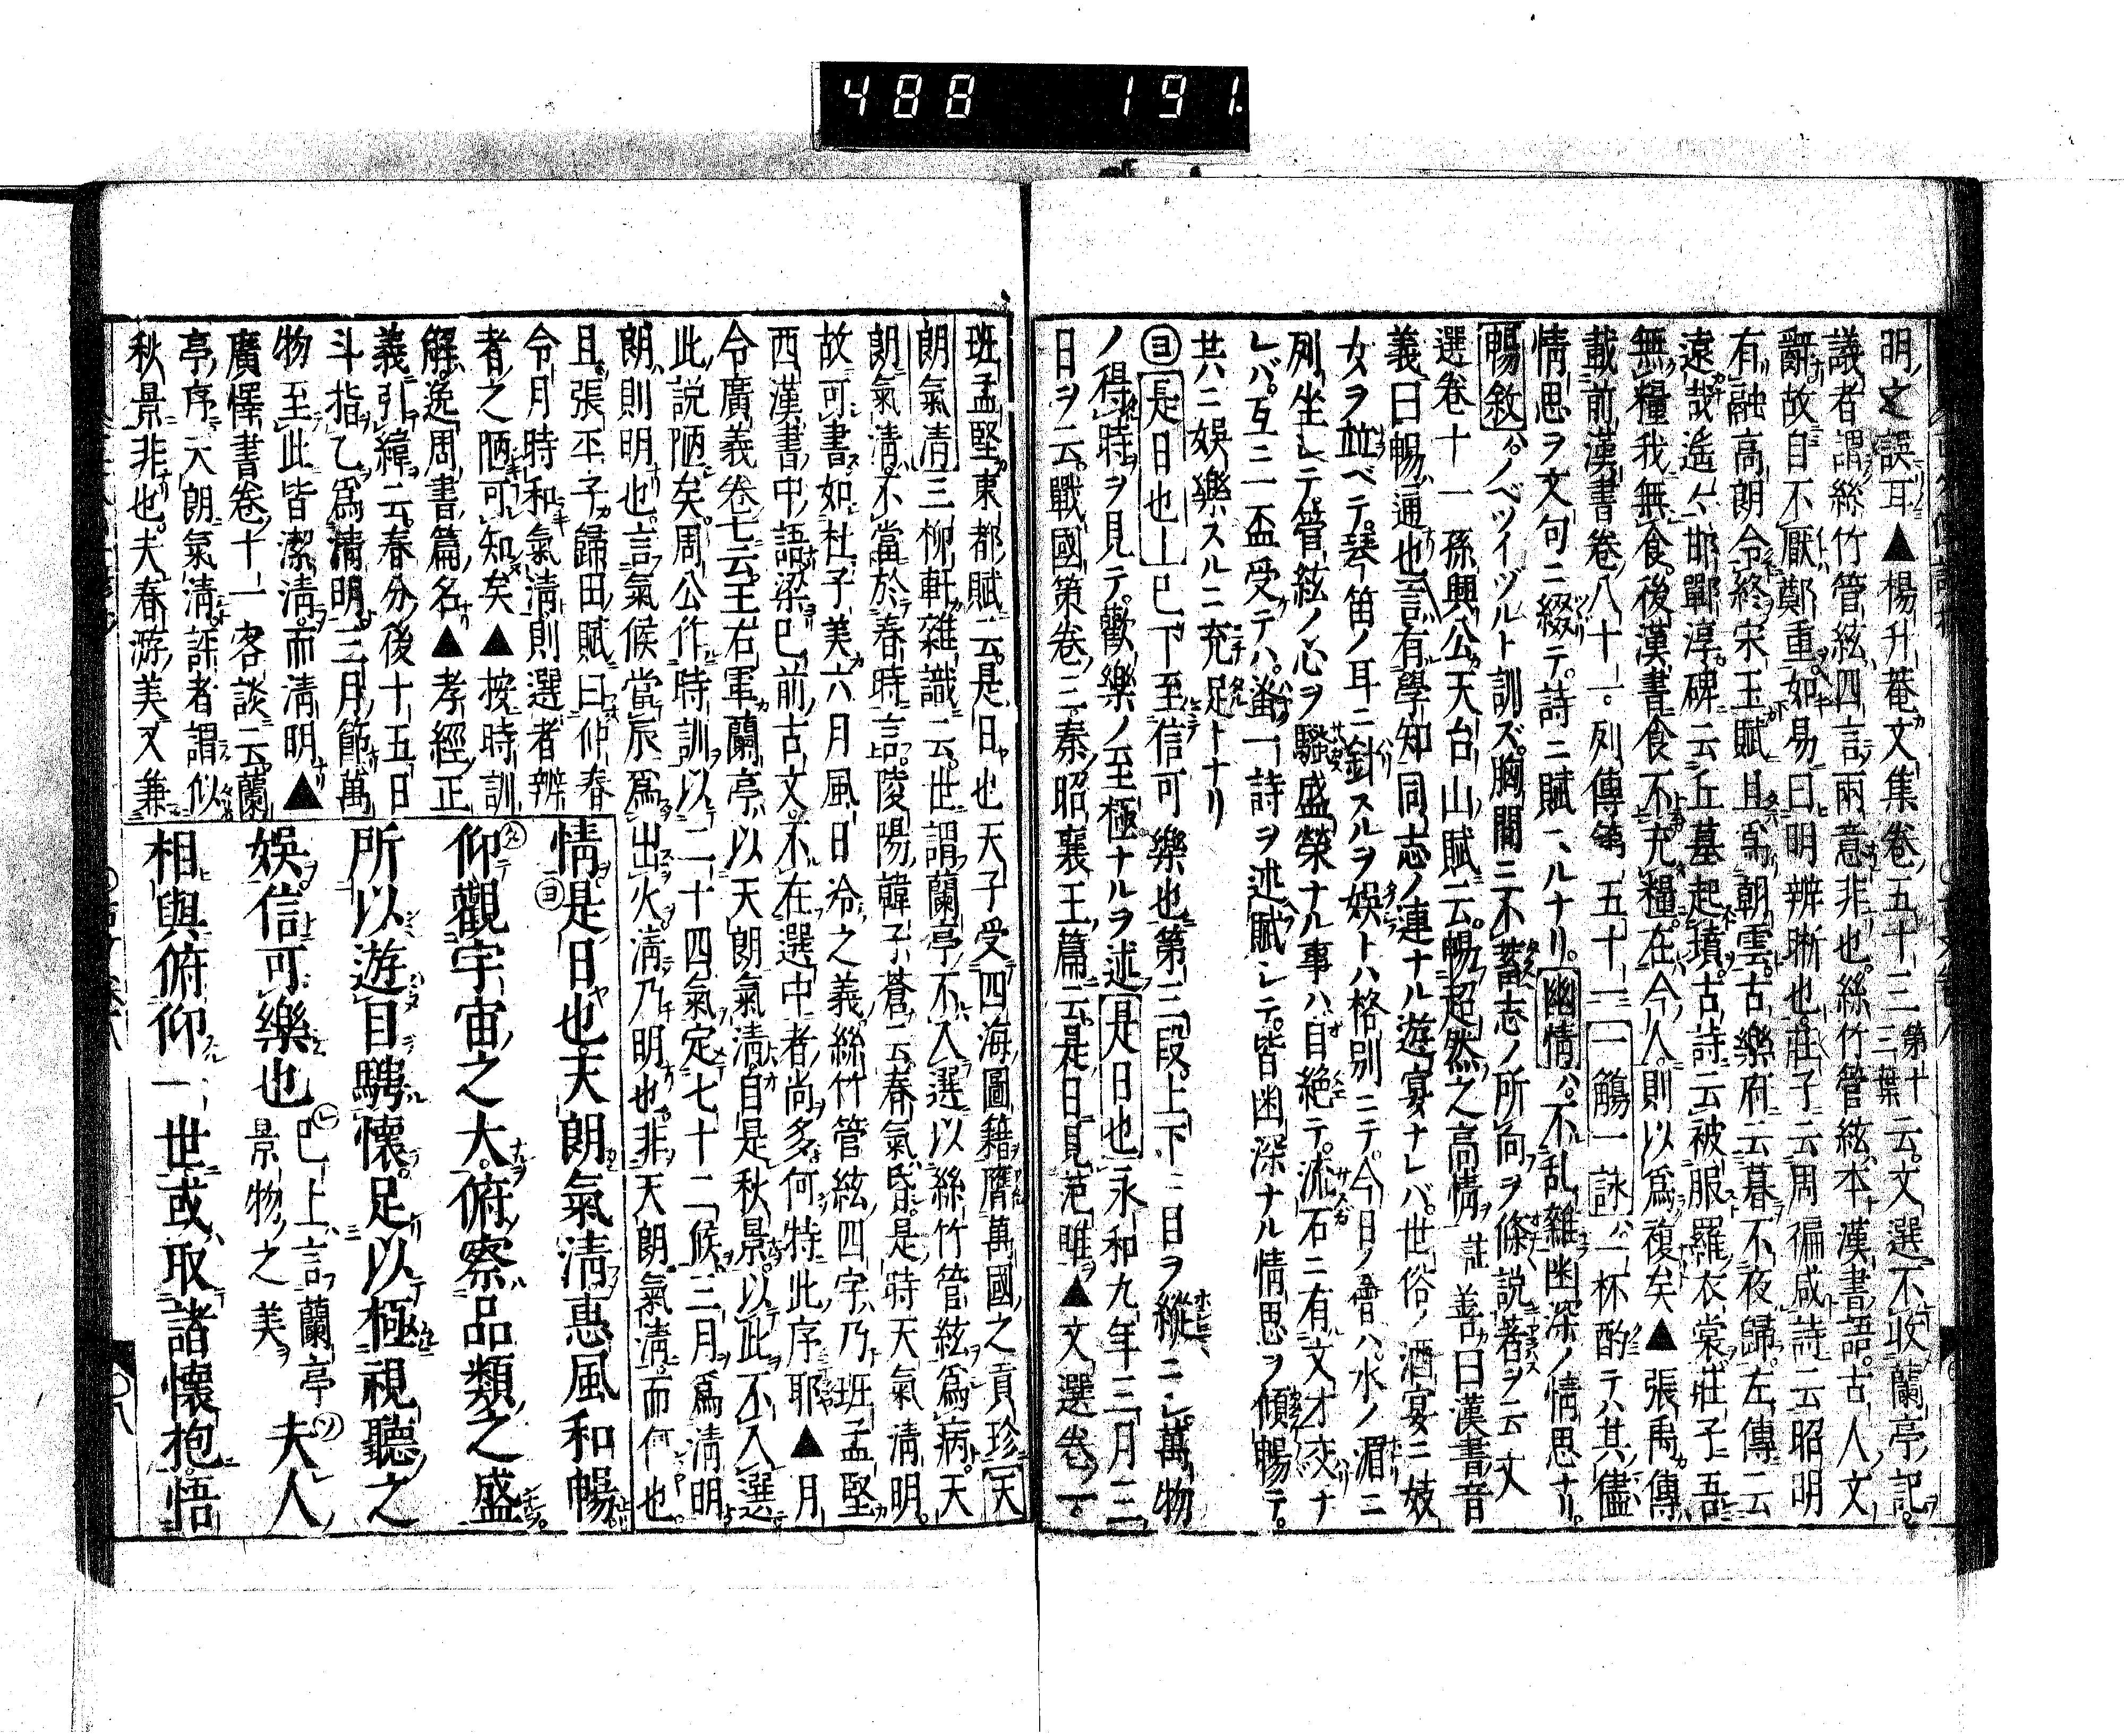 488 191.
明之誤耳▲楊升菴文集卷五十三第十三葉云文選不收蘭亭記
議者謂絲竹管絃四言兩意非也絲竹管絃本漢書語古人文
辭故自不厭鄭重如易曰明辨晰也莊子云周徧咸詩云昭明
有融高朗令終宋玉賦旦為朝雲古樂府云暮不夜歸左傳云
遠哉遙々邯鄲淳碑云丘墓起墳古詩云被服羅衣裳莊子吾
無糧我無食後漢書食不充糧在今人則以為複矣▲張禹傳
載前漢書卷八十一列傳第五十一一觴一詠ハ一杯酌テハ其儘
情思ヲ文句ニ綴テ詩ニ賦ハルナリ幽情ハ不乱雜幽深ノ情思ナリ
暢敘ハノベツイヅルト訓ズ胸間三不蓄志ノ所向ヲ條說著ヲ云文
選卷十一孫興公天台山賦云暢超然之高情註善曰漢書音
義曰暢通也言有學知同志ノ連ナル遊宴ナレバ世俗ノ酒宴ニ妓
女ヲ竝ベテ琴笛ノ耳ニ針スルヲ娯トハ格別ニテ今日ノ會ハ水ノ湄ニ
列坐シテ管絃ノ心ヲ騷盛榮ナル事ハ自絶テ流石ニ有文才交ナ
レバ互ニ一盃受テハ濫一詩ヲ述賦シテ皆幽深ナル情思ヲ傾暢テ
共ニ娯樂スルニ充足トナリ
ヨ是日也上巳下至信可樂也第三段上下二日ヲ縱ニシ萬物
ノ得時ヲ見テ歡樂ノ至極ナルヲ述是日也永和九年三月三
日ヲ云戰國策卷三秦昭襄王篇云是日見范雎▲文選卷一
班孟堅東都賦云是日也天子受四海圖籍膺萬國之貢珍天
朗氣清三柳軒雜識云世謂蘭亭不入選以絲竹管絃為病天
朗氣清不當於春時言陵陽韓子蒼云春氣昏是時天氣清明
故可書如杜子美六月風日冷之義絲竹管絃四字乃班孟堅
西漢書中語梁已前古文不在選中者尚多何特此序耶▲月
令廣義卷七云王右軍蘭亭以天朗氣清自是秋景以此不入選
此說陋矣周公作時訓以二十四氣定七十二候三月為清明
朗則明也言氣候當辰為出火清乃明也非天朗氣清而何也
且張平子歸田賦曰仲春
令月時和氣清則選者辨
者之陋可知矣▲按時訓
解逸周書篇名▲孝經正
義引緯云春分後十五日
斗指乙為清明三月節萬
物至此皆潔清而清明▲
廣懌書卷十一客談云蘭
亭序天朗氣清評者謂似
秋景非也夫春游美又兼
情是日也天朗氣清惠風和暢
仰觀宇宙之大俯察品類之盛
所以遊目騁懷足以極視聽之
娯信可樂也巳上言蘭亭景物之美夫人
相與俯仰一世或取諸懷抱悟